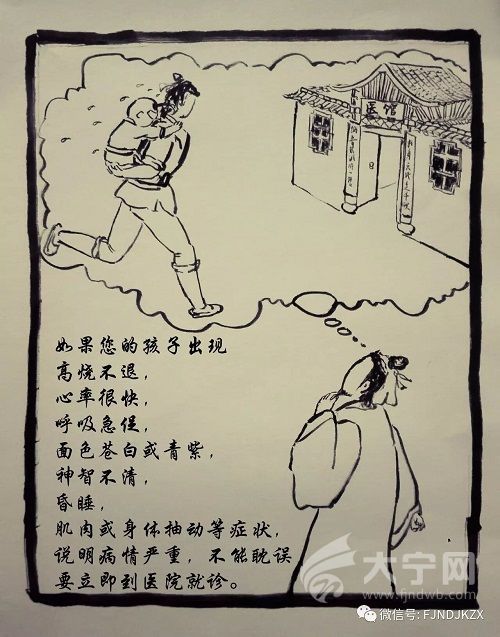 医馆
如果您的孩子出现
高烧不退，
心率很快，
呼吸急促，
面色苍白或青紫，
神智不清，
昏睡，
肌肉或身体抽动等症状，
说明病情严重，不能耽误
要立即到医院就诊。
大宁网
www.fjndwb.com
微信号: FJNDJKZX